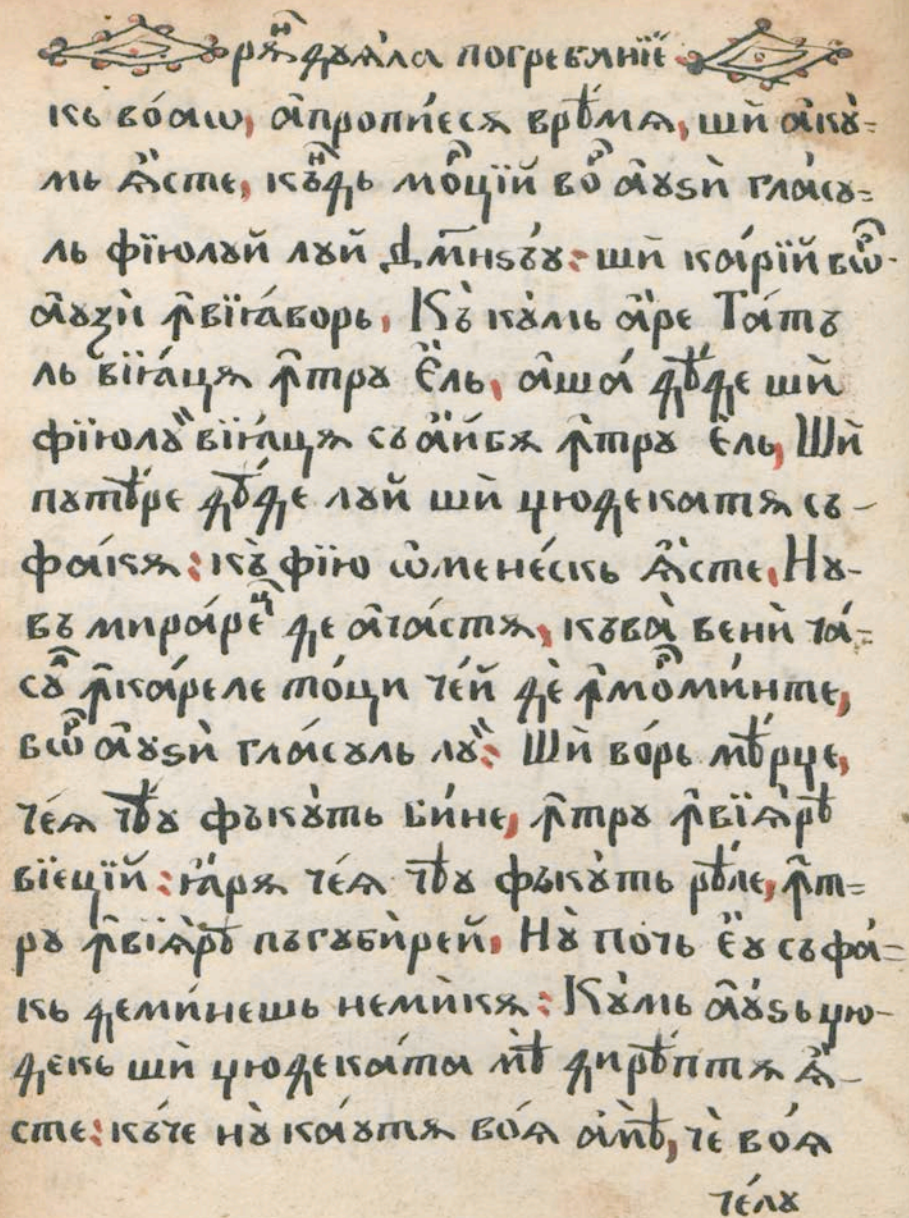 рѫⷩ҇дꙋѧ́ла погребанїе
кь во́аѡ, а҆пропи́есѧ врѣ́мѧ, шѝ а҆кꙋ̀=
мь ѧ҆́сте, къⷩ҇дь мо́рⷬ҇цїй воⷬ҇ а҆ꙋѕѝ гла́сꙋ=
ль фїюлꙋй лꙋй дм҃нѕъ́ꙋ: шѝ ка́рїй вѡⷬ҇
а҆ꙋзѝ ꙟ҆вїꙗ́ворь, Къ̀ кꙋ̀мь а҆́ре Та́тъ
ль вїꙗ́ца ꙟ҆трꙋ Є҆́ль, а҆ша́ дѣ́де шѝ
фїюлꙋⷽ҇ вїꙗ́цѧ съ а҆́йбѧ ꙟ҆трꙋ Є҆́ль, Шѝ
пꙋтѣ́ре дѣ́де лꙋй шѝ цюдекатѧ съ-
фа́кѧ: къ̀ фїю ѡ҆мене́скь ѧ҆́сте, Нꙋ-
въ мира́реⷰ҇ де а҆ча́стѧ, къва̀ венѝ ча́=
сꙋⷧ҇ ꙟ҆ка́реле то́ци че́й дѐ ꙟ҆моⷬ҇ми́нте,
вѡⷬ҇ а҆ꙋѕѝ гла́сꙋль лꙋⷽ҇: Шѝ во́рь мѣ́рце,
че́ѧ чѣ́ꙋ фъкꙋ̀ть би́не, ꙟ҆трꙋ ꙟ҆вїѧ́рѣ
вїецїй: ꙗ҆́рѧ че́ѧ чѣ́ꙋ фъкꙋ̀ть рѣ́ле, ꙟ҆т=
рꙋ ꙟ҆вїѧ́рѣ пъгꙋби́рей, Нꙋ̀ почь Є҆́ꙋ съ фа́=
кь деми́нешь немѝкѧ: Кꙋ̀мь а҆ꙋ́ѕь цю-
декь шѝ цюдека́та мѣ̀ дирѣ́птѧ ѧ҆́-
сте: къче нꙋ̀ ка́ꙋтѧ во́ѧ а҆мѣ̀, чѐ во́ѧ
че́лꙋ